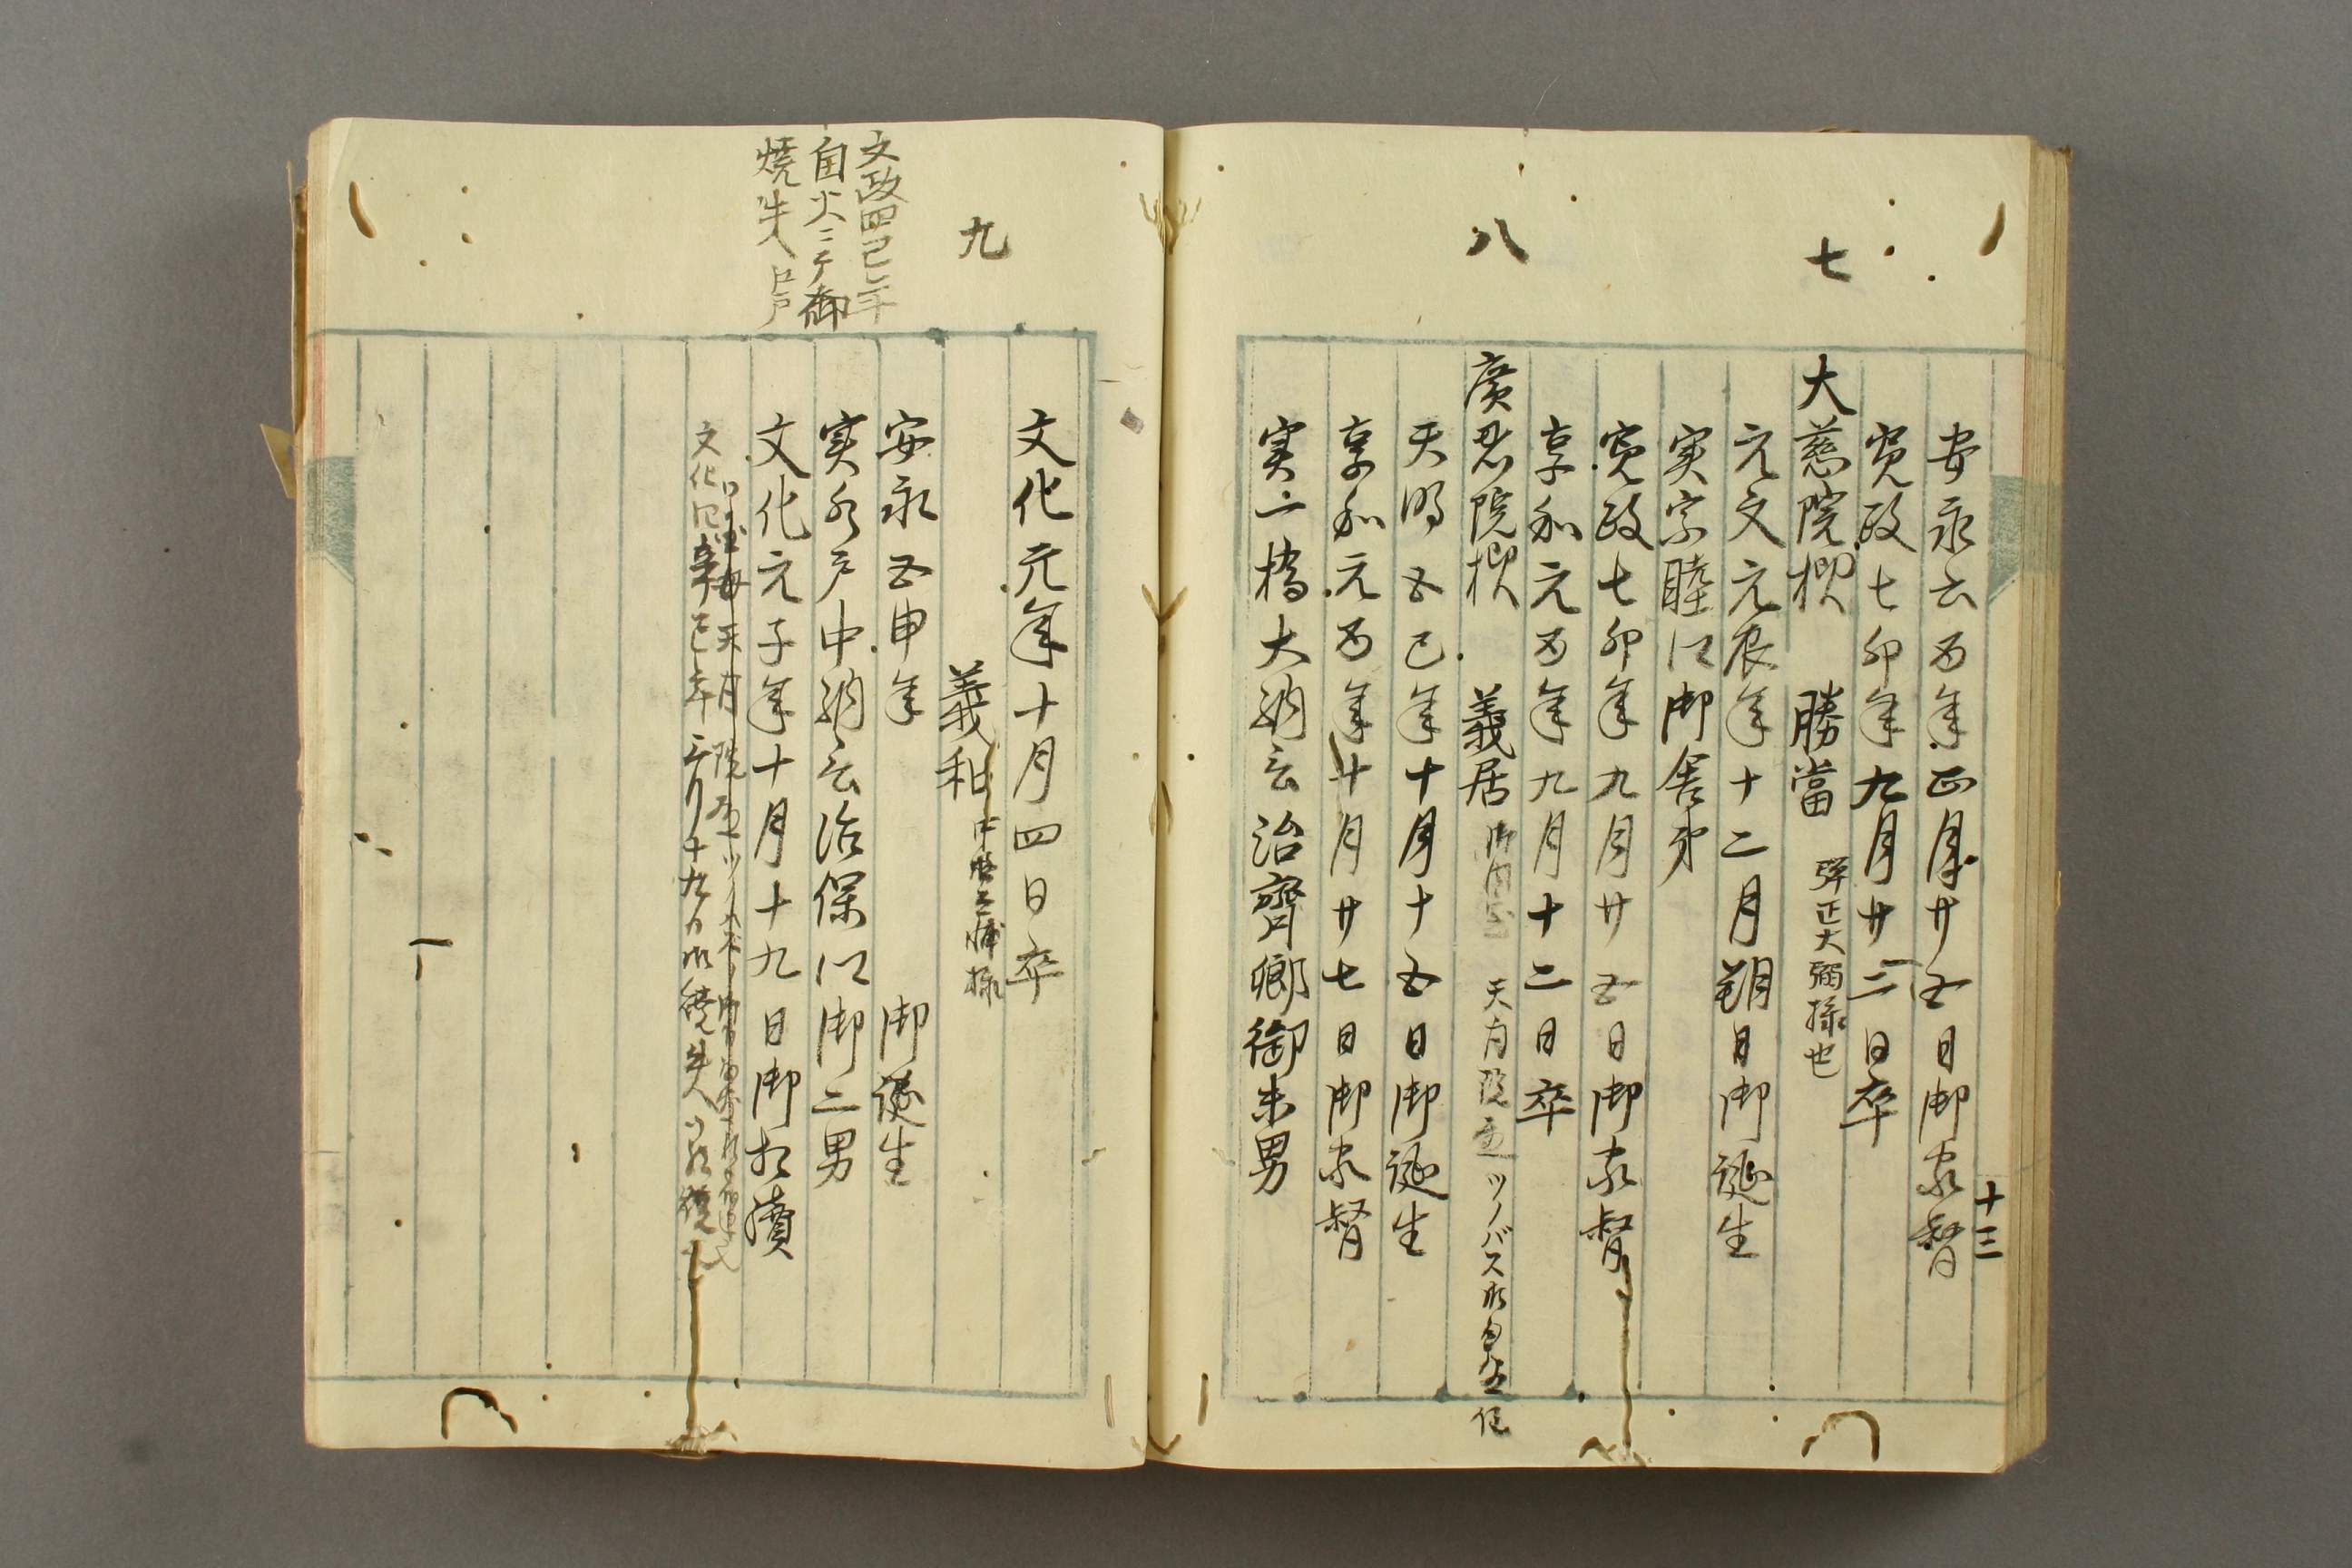 十三
安永六酉年正月廿五日御家督
寛政七卯年九月廿二日卒
七
大慈院様 勝當 弾正大弼様也
元文元辰年十二月朔日御誕生
実宗睦公御舎弟
寛政七卯年九月廿五日御家督
享和元酉年九月十二日卒
八
廣忍院様 義居 天月院
天明五巳年十月十五日御誕生
享和元酉年十月廿七日御家督
実一橋大納言治齊卿御末男
文化元年十月四日卒
九
義和 中務大輔様
安永五申年 御誕生
実水戸中納言治保公御二男
文化元子年十月十九日御相續
文政四巳年
自火ニテ御
焼失 江戸